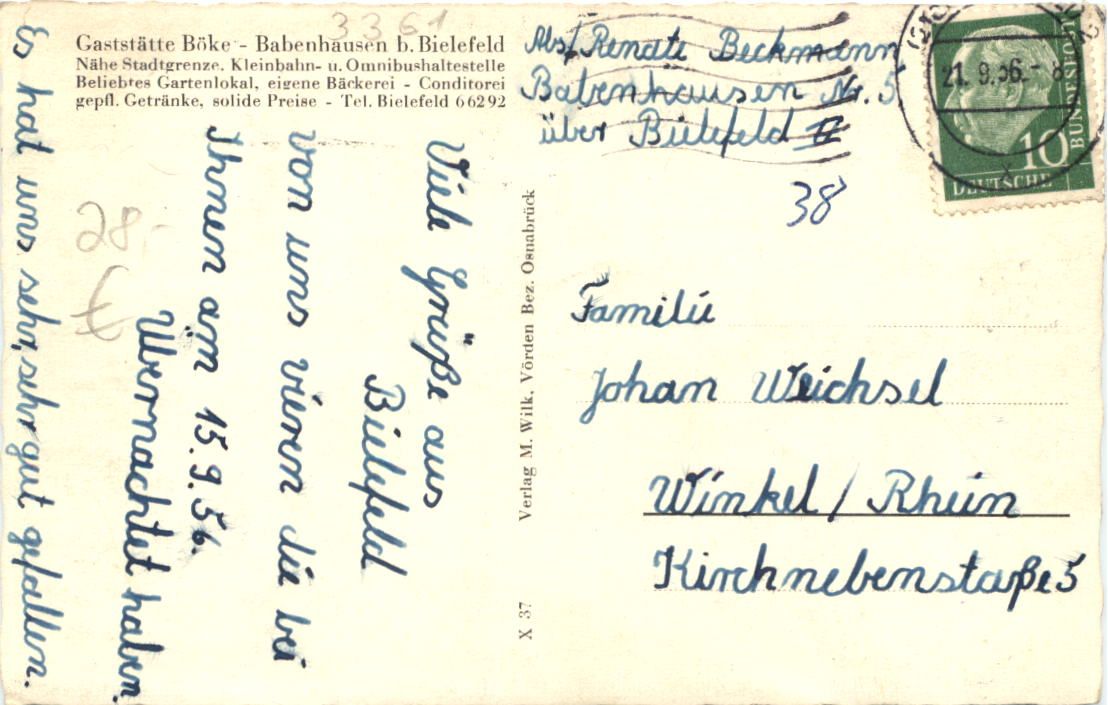 3361
Gaststätte Böke - Babenhausen b. Bielefeld
Nähe Stadtgrenze. Kleinbahn- u. Omnibushaltestelle
Beliebtes Gartenlokal, eigene Bäckerei - Conditorei
gepfl. Getränke, solide Preise - Tel. Bielefeld 66292
Viele Grüße aus
Bielefeld
von uns vieren die bei
Ihnen am 15.9.56.
Übernachtet haben.
Es hat uns sehr, sehr gut gefallen.
28,-
€
Verlag M. Wilk, Vörden Bez. Osnabrück
X 37
Abs/ Renate Beckmann
Babenhausen Nr. 5
über Bielefeld II
38
21.9.56.-8
10
DEUTSCHE
BUNDESPOST
Familie
Johan Weichsel
Winkel / Rhein
Kirchnebenstaße 5